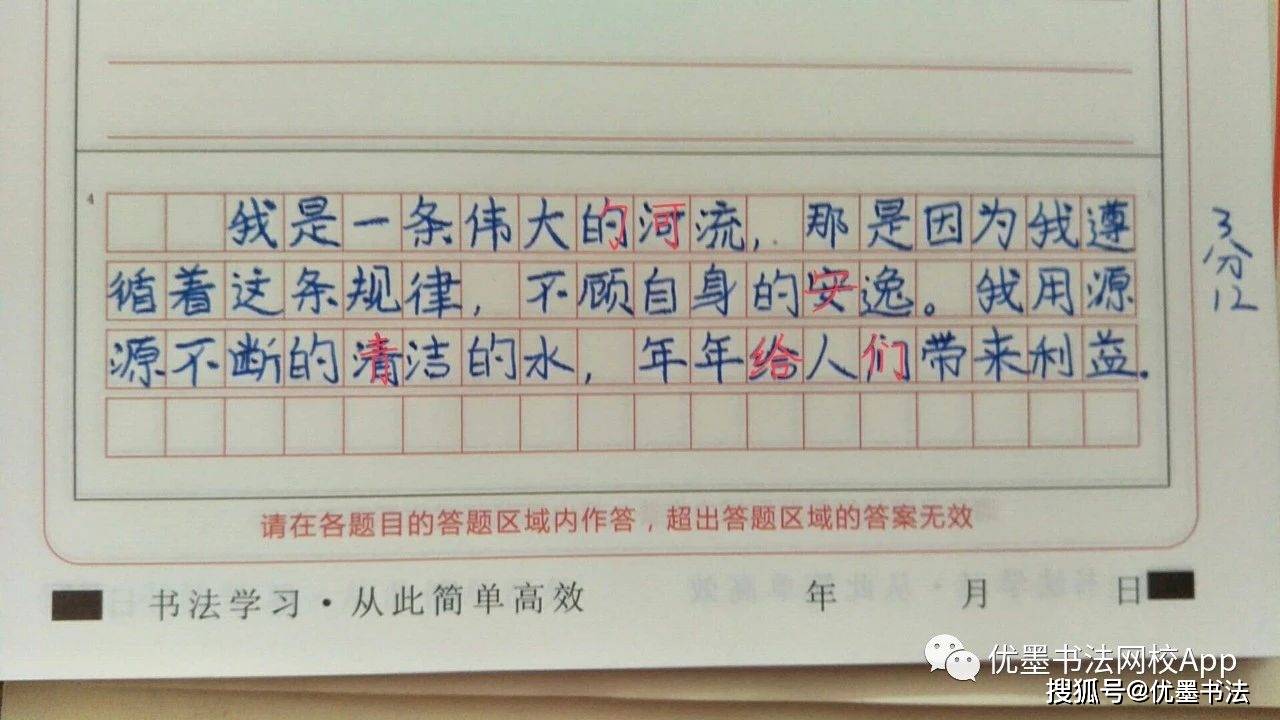 4
我是一条伟大的河流，那是因为我遵
循着这条规律，不顾自身的安逸。我用源
源不断的清洁的水，年年给人们带来利益.
3分12
请在各题目的答题区域内作答，超出答题区域的答案无效
书法学习·从此简单高效 年 月 日
优墨书法网校App
搜狐号@优墨书法